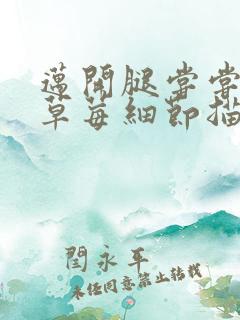 邁開腿嘗嘗
草莓細節描
閆永平
未经同意禁止转载